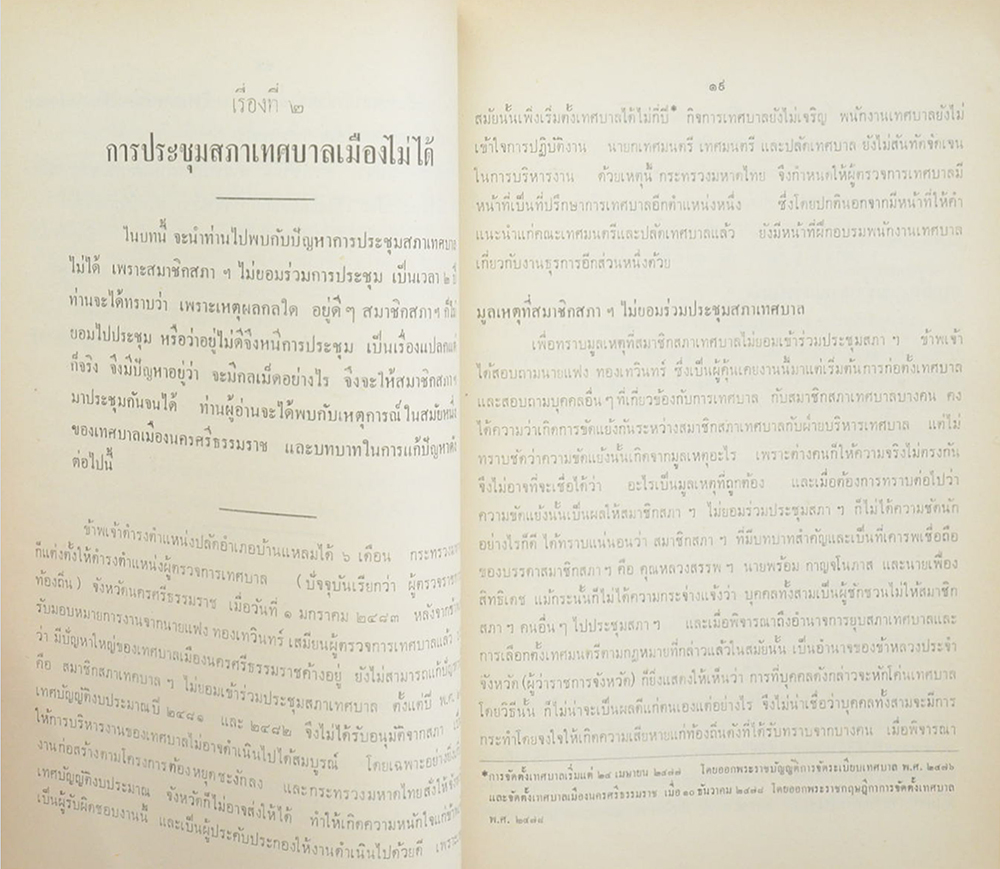 เรื่องที่ ๒
การประชุมสภาเทศบาลเมืองไม่ได้
ในบทนี้ จะนำท่านไปพบกับปัญหาการประชุมสภาเทศบาล
ไม่ได้ เพราะสมาชิกสภา ฯ ไม่ยอมร่วมการประชุม เป็นเวลา ๒ ปี
ท่านจะได้ทราบว่า เพราะเหตุผลกลใด อยู่ดี ๆ สมาชิกสภา ฯ ก็ไม่
ยอมไปประชุม หรือว่าอยู่ไม่ดีจึงหนีการประชุม เป็นเรื่องแปลกแต่
ก็จริง จึงมีปัญหาอยู่ว่า จะมีกลเม็ดอย่างไร จึงจะให้สมาชิกสภา ฯ
มาประชุมกันจนได้ ท่านผู้อ่านจะได้พบกับเหตุการณ์ในสมัยหนึ่ง
ของเทศบาลเมืองนครศรีธรรมราช และบทบาทในการแก้ปัญหาดัง
ต่อไปนี้
ข้าพเจ้าดำรงตำแหน่งปลัดอำเภอบ้านแหลมได้ ๖ เดือน กระทรวง
ก็แต่งตั้งให้ดำรงตำแหน่งผู้ตรวจการเทศบาล (ปัจจุบันเรียกว่า ผู้ตรวจ
ท้องถิ่น) จังหวัดนครศรีธรรมราช เมื่อวันที่ ๑ มกราคม ๒๔๘๓ หลังจาก
รับมอบหมายการงานจากนายแฟง ทองเทวินทร์ เสมียนผู้ตรวจการเทศบาลแล้ว
ว่า มีปัญหาใหญ่ของเทศบาลเมืองนครศรีธรรมราชค้างอยู่ ยังไม่สามารถแก้
คือ สมาชิกสภาเทศบาล ฯ ไม่ยอมเข้าร่วมประชุมสภาเทศบาล ตั้งแต่ปี พ.ศ.
เทศบัญญัติงบประมาณปี ๒๔๘๑ และ ๒๔๘๒ จึงไม่ได้รับอนุมัติจากสภา
ให้การบริหารงานของเทศบาลไม่อาจดำเนินไปได้สมบูรณ์ โดยเฉพาะอย่างยิ่ง
งานก่อสร้างตามโครงการต้องหยุดชะงักลง และกระทรวงมหาดไทยสั่งให้
เทศบัญญัติงบประมาณ จังหวัดก็ไม่อาจส่งให้ได้ ทำให้เกิดความหนักใจแก่
เป็นผู้รับผิดชอบงานนี้ และเป็นผู้ประคับประคองให้งานดำเนินไปด้วยดี เพราะ
๑๙
สมัยนั้นเพิ่งเริ่มตั้งเทศบาลได้ไม่กี่ปี* กิจการเทศบาลยังไม่เจริญ พนักงานเทศบาลยังไม่
เข้าใจการปฏิบัติงาน นายกเทศมนตรี เทศมนตรี และปลัดเทศบาล ยังไม่สันทัดจัดเจน
ในการบริหารงาน ด้วยเหตุนี้ กระทรวงมหาดไทย จึงกำหนดให้ผู้ตรวจการเทศบาลมี
หน้าที่เป็นที่ปรึกษาการเทศบาลอีกตำแหน่งหนึ่ง ซึ่งโดยปกตินอกจากมีหน้าที่ให้คำ
แนะนำแก่คณะเทศมนตรีและปลัดเทศบาลแล้ว ยังมีหน้าที่ฝึกอบรมพนักงานเทศบาล
เกี่ยวกับงานธุรการอีกส่วนหนึ่งด้วย
มูลเหตุที่สมาชิกสภา ฯ ไม่ยอมร่วมประชุมสภาเทศบาล
เพื่อทราบมูลเหตุที่สมาชิกสภาเทศบาลไม่ยอมเข้าร่วมประชุมสภา ฯ ข้าพเจ้า
ได้สอบถามนายแฟง ทองเทวินทร์ ซึ่งเป็นผู้คุ้นเคยงานนี้มาแต่เริ่มต้นการก่อตั้งเทศบาล
และสอบถามบุคคลอื่น ๆ ที่เกี่ยวข้องกับการเทศบาล กับสมาชิกสภาเทศบาลบางคน คง
ได้ความว่าเกิดการขัดแย้งกันระหว่างสมาชิกสภาเทศบาลกับฝ่ายบริหารเทศบาล แต่ไม่
ทราบชัดว่าความขัดแย้งนั้นเกิดจากมูลเหตุอะไร เพราะต่างคนก็ให้ความจริงไม่ตรงกัน
จึงไม่อาจที่จะเชื่อได้ว่า อะไรเป็นมูลเหตุที่ถูกต้อง และเมื่อต้องการทราบต่อไปว่า
ความขัดแย้งนั้นเป็นผลให้สมาชิกสภา ฯ ไม่ยอมร่วมประชุมสภา ฯ ก็ไม่ได้ความชัดนัก
อย่างไรก็ดี ได้ทราบแน่นอนว่า สมาชิกสภา ฯ ที่มีบทบาทสำคัญและเป็นที่เคารพเชื่อถือ
ของบรรดาสมาชิกสภา ฯ คือ คุณหลวงสรรพ ฯ นายพร้อม กาญจโนภาส และนายเฟื่อง
สิทธิเดช แม้กระนั้นก็ไม่ได้ความกระจ่างแจ้งว่า บุคคลทั้งสามเป็นผู้ชักชวนไม่ให้สมาชิก
สภา ฯ คนอื่น ๆ ไปประชุมสภา ฯ และเมื่อพิจารณาถึงอำนาจการยุบสภาเทศบาลและ
การเลือกตั้งเทศมนตรีตามกฎหมายที่กล่าวแล้วในสมัยนั้น เป็นอำนาจของข้าหลวงประจำ
จังหวัด (ผู้ว่าราชการจังหวัด) ก็ยิ่งแสดงให้เห็นว่า การที่บุคคลดังกล่าวจะหักโค่นเทศบาล
โดยวิธีนั้น ก็ไม่น่าจะเป็นผลดีแก่ตนเองแต่อย่างไร จึงไม่น่าเชื่อว่าบุคคลทั้งสามจะมีการ
กระทำโดยจงใจให้เกิดความเสียหายแก่ท้องถิ่นดังที่ได้รับทราบจากบางคน เมื่อพิจารณา
*การจัดตั้งเทศบาลเริ่มแต่ ๒๔ เมษายน ๒๔๗๗ โดยออกพระราชบัญญัติการจัดระเบียบเทศบาล พ.ศ. ๒๔๗๖
และจัดตั้งเทศบาลเมืองนครศรีธรรมราช เมื่อ ๑๐ ธันวาคม ๒๔๗๘ โดยออกพระราชกฤษฎีกาการจัดตั้งเทศบาล
พ.ศ. ๒๔๗๘